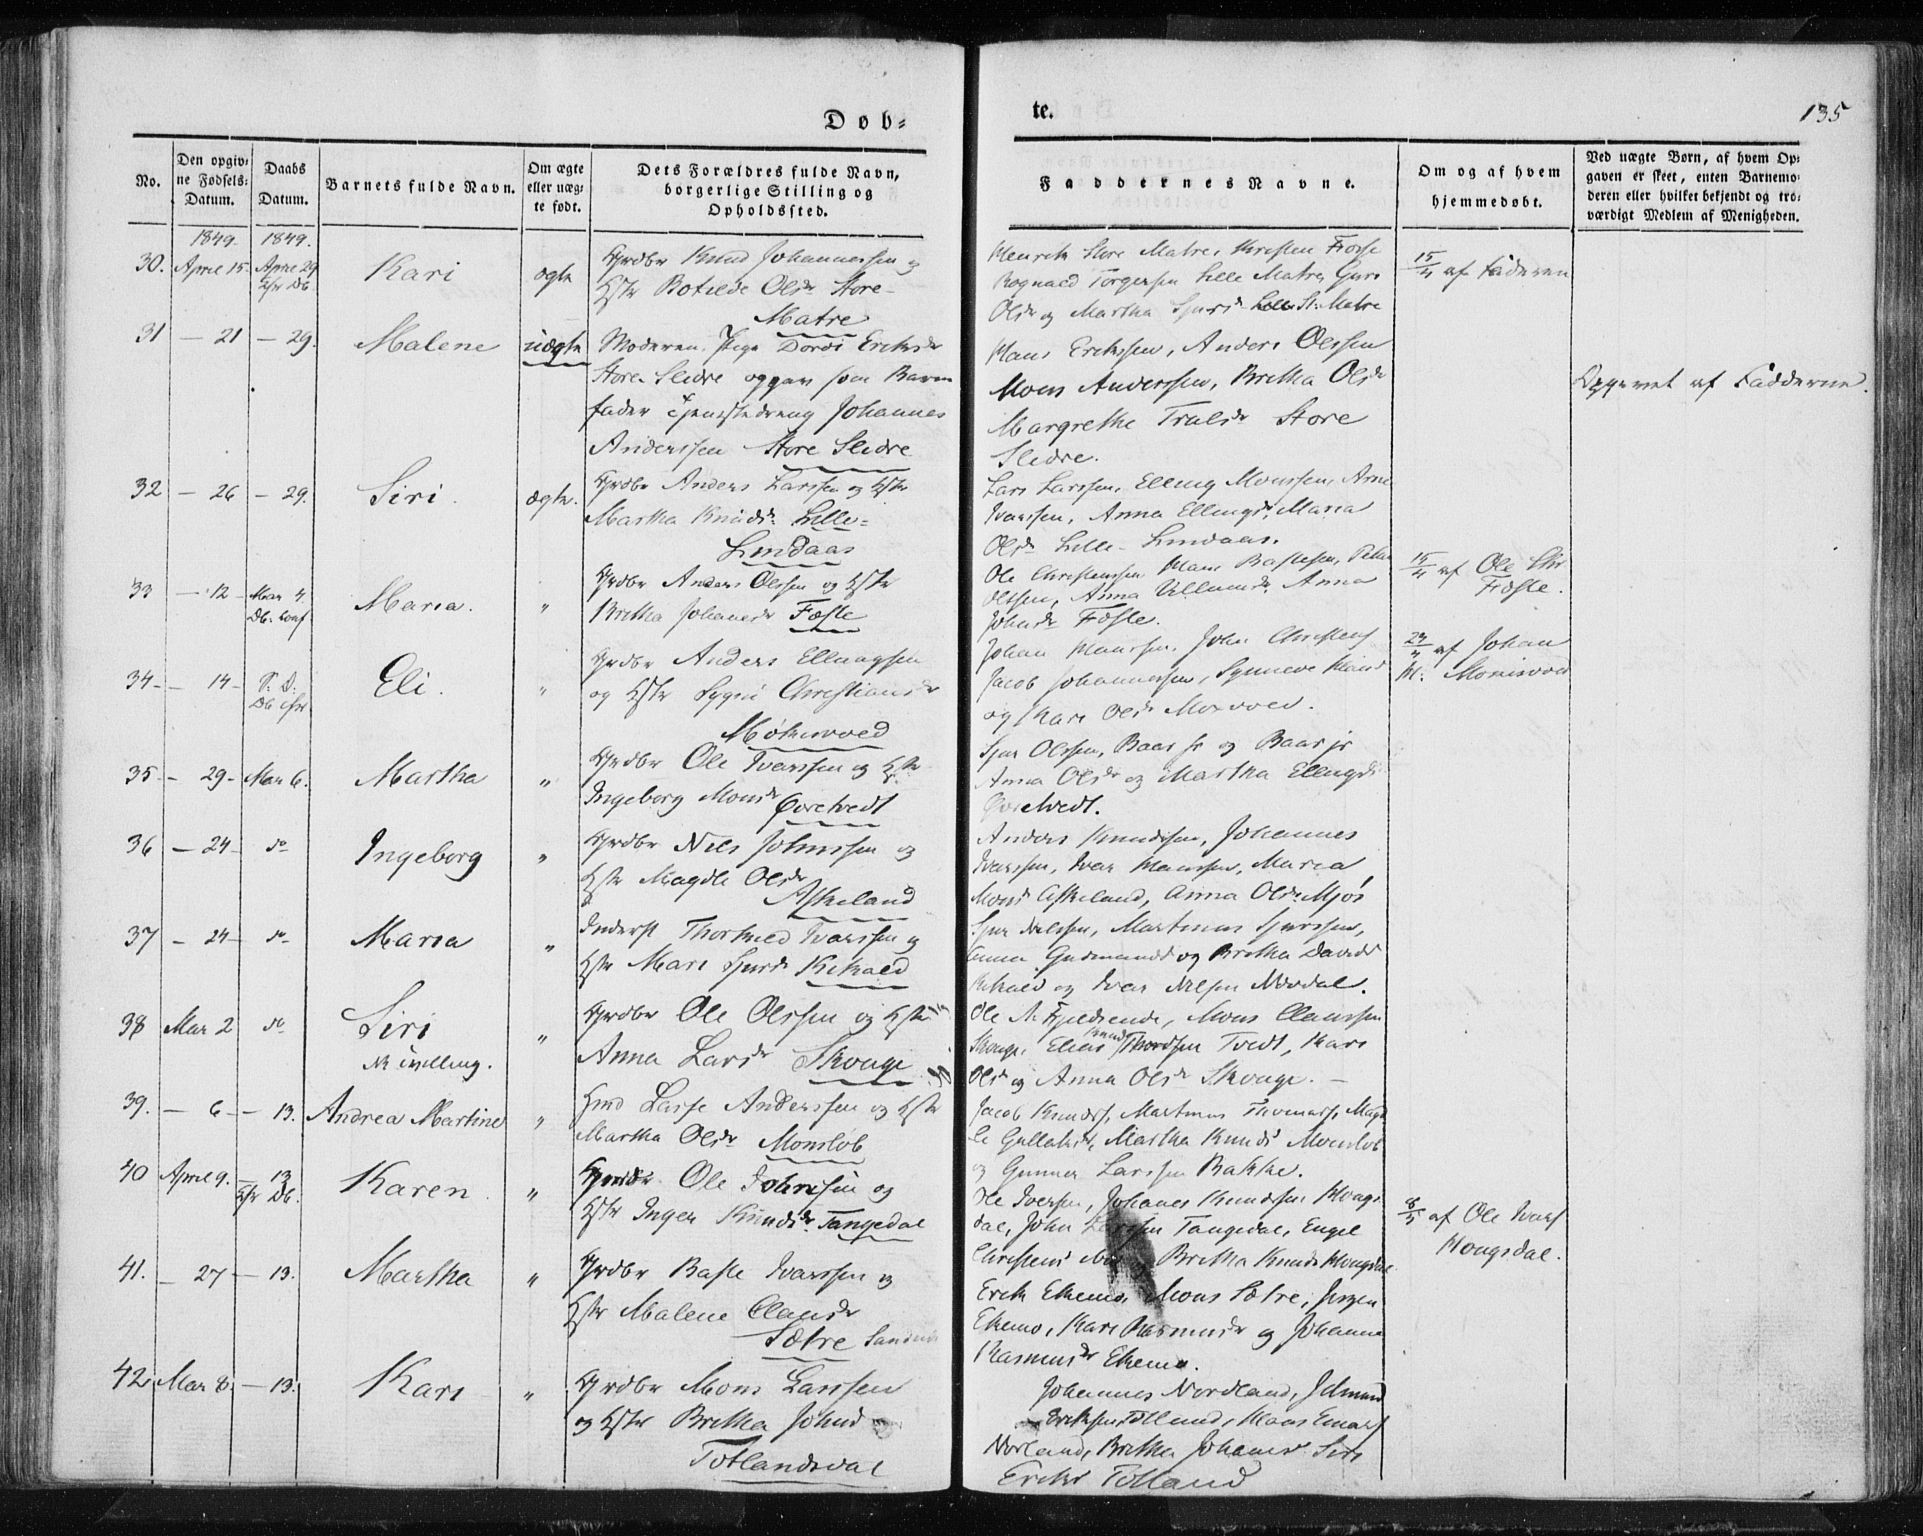 Døb-
te.
135
No.
Den opgiv-
ne Fødsels-
Datum.
Daabs
Datum.
Barnets fulde Navn.
Om ægte
eller uæg-
te født.
Dets Forældres fulde Navn,
borgerlige Stilling og
Opholdssted.
Faddernes Navne.
Om og af hvem
hjemmedøbt.
Ved uægte Børn, af hvem Op-
gaven er skeet, enten Barnemo-
deren eller hvilket bekjendt og tro-
værdigt Medlem af Menigheden.
1849. 1849.
30. April 15. April 29 Kari ægte Grdbr Knud Johannessen og
Kstr Botilde Olsdr Store
Matre
Henrik Store Matre, Christen Fosse
Rognald Torgersen Lille Matre, Guri
Olsdr og Martha Sjursdr St. Matre
15/4 af Faderen
31 - 21 - 29. Malene uægte Moderen Pige Dordi Eriksdr
Store Sleire opgav som Barne
fader Tjenestedreng Johannes
Anderssen Store Sleire
Hans Erikssen, Anders Olssen
Mons Anderssen, Britha Olsdr
Margrethe Trulsdr Store
Sleire.
Opgivet af Fadderne.
32 - 26 - 29. Siri. ægte. Grdbr Anders Larssen og Kstr
Martha Knudsdr Lille-
Lindaas
Lars Larssen, Elling Monssen, Arne
Ivarssen, Anna Ellingsdr, Maria
Olsdr Lille-Lindaas.
33 - 12 - Mai 4. Maria. " Grdbr Anders Olssen og Kstr
Britha Johansdr Fæste
Ole Christenssen, Hans Bastesen, Peder
Olssen, Anna Villumsdr, Anna
Johnsdr Fæste.
15/4 af Ole Chr
Fæste.
34 - 14 - S. D. Eli. " Grdbr Anders Ellingsen
og Kstr Sygni Christiansdr
Johan Hanssen, John Christens
Jacob Johannessen, Synneve Hans
og Kari Olsdr
af Johan
35 - 29 - Mai 6. Martha " Grdbr Ole Ivarssen og Kstr
Ingeborg Monsdr Qvretvedt
Sjur Olssen, Baar sr og Baar jr
Anna Olsdr og Martha Ellingsdr
Qvretvedt.
36 - 24 - do Ingeborg " Grdbr Nils Johnssen og
Kstr Magdli Olsdr
Askeland
Anders Knudssen, Johannes
Ivarssen, Ivar Hanssen, Maria
Monsdr Askeland, Anna Olsdr Mjøs
37 - 24 - do Maria " Inderst Thorkild Ivarssen og
Kstr Mari Sjursdr Kikald
Sjur Nilssen, Martinus Sjurssen,
Anna Gudmundsdr og Britha Davidsdr
Kikald og Ivar Nilsen Nordal.
38 Mai 2 do Siri " Grdbr Ole Olssen og Kstr
Nk tvilling.
Anna Larsdr Skouge
Ole N. Fjeldsende, Mons Clausssen
Skouge, Elias Knud Thordsen Tvedt, Kari
Olsdr og Anna Olsdr Skouge. -
39. - 6 - - 13. Andrea Martine " Hmd Lasse Anderssen og Kstr
Martha Olsdr Monsløb
Jacob Knuds, Martinus Thomass, Mag
li Gullaksdr, Martha Knuds Monsløb
og Gunner Larssen Bakke.
40 April 9. - 13 Karen " Grdbr Ole Johnsen og
Kstr Inger Knudsdr Tangedal
Ole Iversen, Johanes Knudssen Hougs
dal, John Larssen Tangedal, Engel
Christens og Britha Knuds Hougsdal
af Ole Ivars
Hougsdal.
41. - 27 - 13. Martha " Grdbr Baste Ivarssen og
Kstr Malene Clausdr
Sætre
Erik Ekemo, Mons Sætre, Jørgen
Ekemo, Kari Rasmusdr og Johanna
Rasmusdr Ekemo.
42 Mai 8. - 13. Kari " Grdbr Mons Larssen
og Kstr Britha Johnsd
Totlandsdal
Johannes Nordland,
Erikssen Totland, Hans Einars
Norland, Britha Johans Siri
Eriks Totland